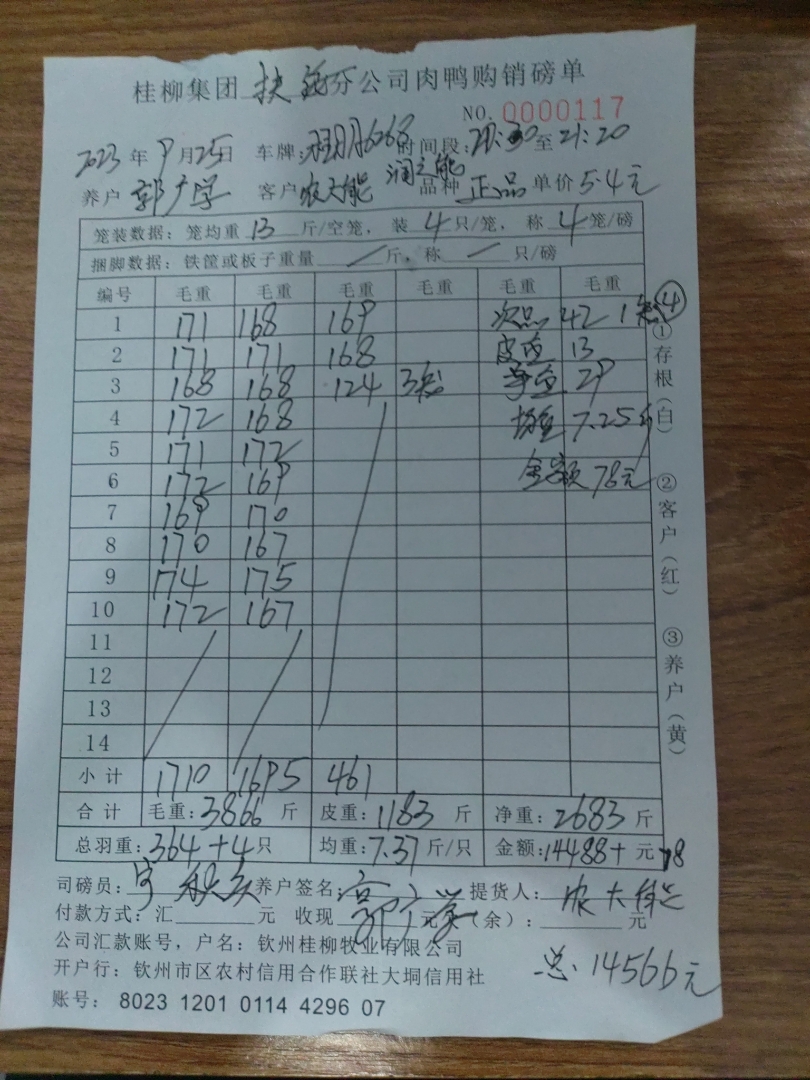 桂柳集团 扶 分公司肉鸭购销磅单
NO. 0000117
2023 年 9 月 25 日 车牌: 6268 时间段: 至 21:20
养户 郭广学 客户 农大能 润之能 品种 正品 单价 5.4元
笼装数据: 笼均重 13 斤/空笼, 装 4 只/笼, 称 4 笼/磅
捆脚数据: 铁筐或板子重量 / 斤, 称 / 只/磅
编号 毛重 毛重 毛重 毛重 毛重 毛重
1 171 168 169 次品 42 1 ④
2 171 171 168 皮重 13
3 168 168 124 3 净重 29
4 172 168 均重 7.25斤
5 171 172
6 172 169 金额 78元
7 169 170
8 170 167
9 174 175
10 172 167
11
12
13
14
小计 1710 1695 461
合计 毛重: 3866 斤 皮重: 1183 斤 净重: 2683 斤
总羽重: 364+4 只 均重: 7.37 斤/只 金额: 14488+ 元 78
司磅员: 养户签名: 郭广学 提货人: 农大能
付款方式: 汇 元 收现 元 (余): 元
公司汇款账号, 户名: 钦州桂柳牧业有限公司
开户行: 钦州市区农村信用合作联社大垌信用社
总: 14566元
账号: 8023 1201 0114 4296 07
①存根(白) ②客户(红) ③养户(黄)